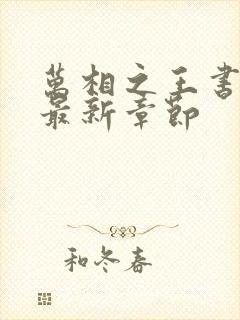 萬相之王書
最新章節
和冬春